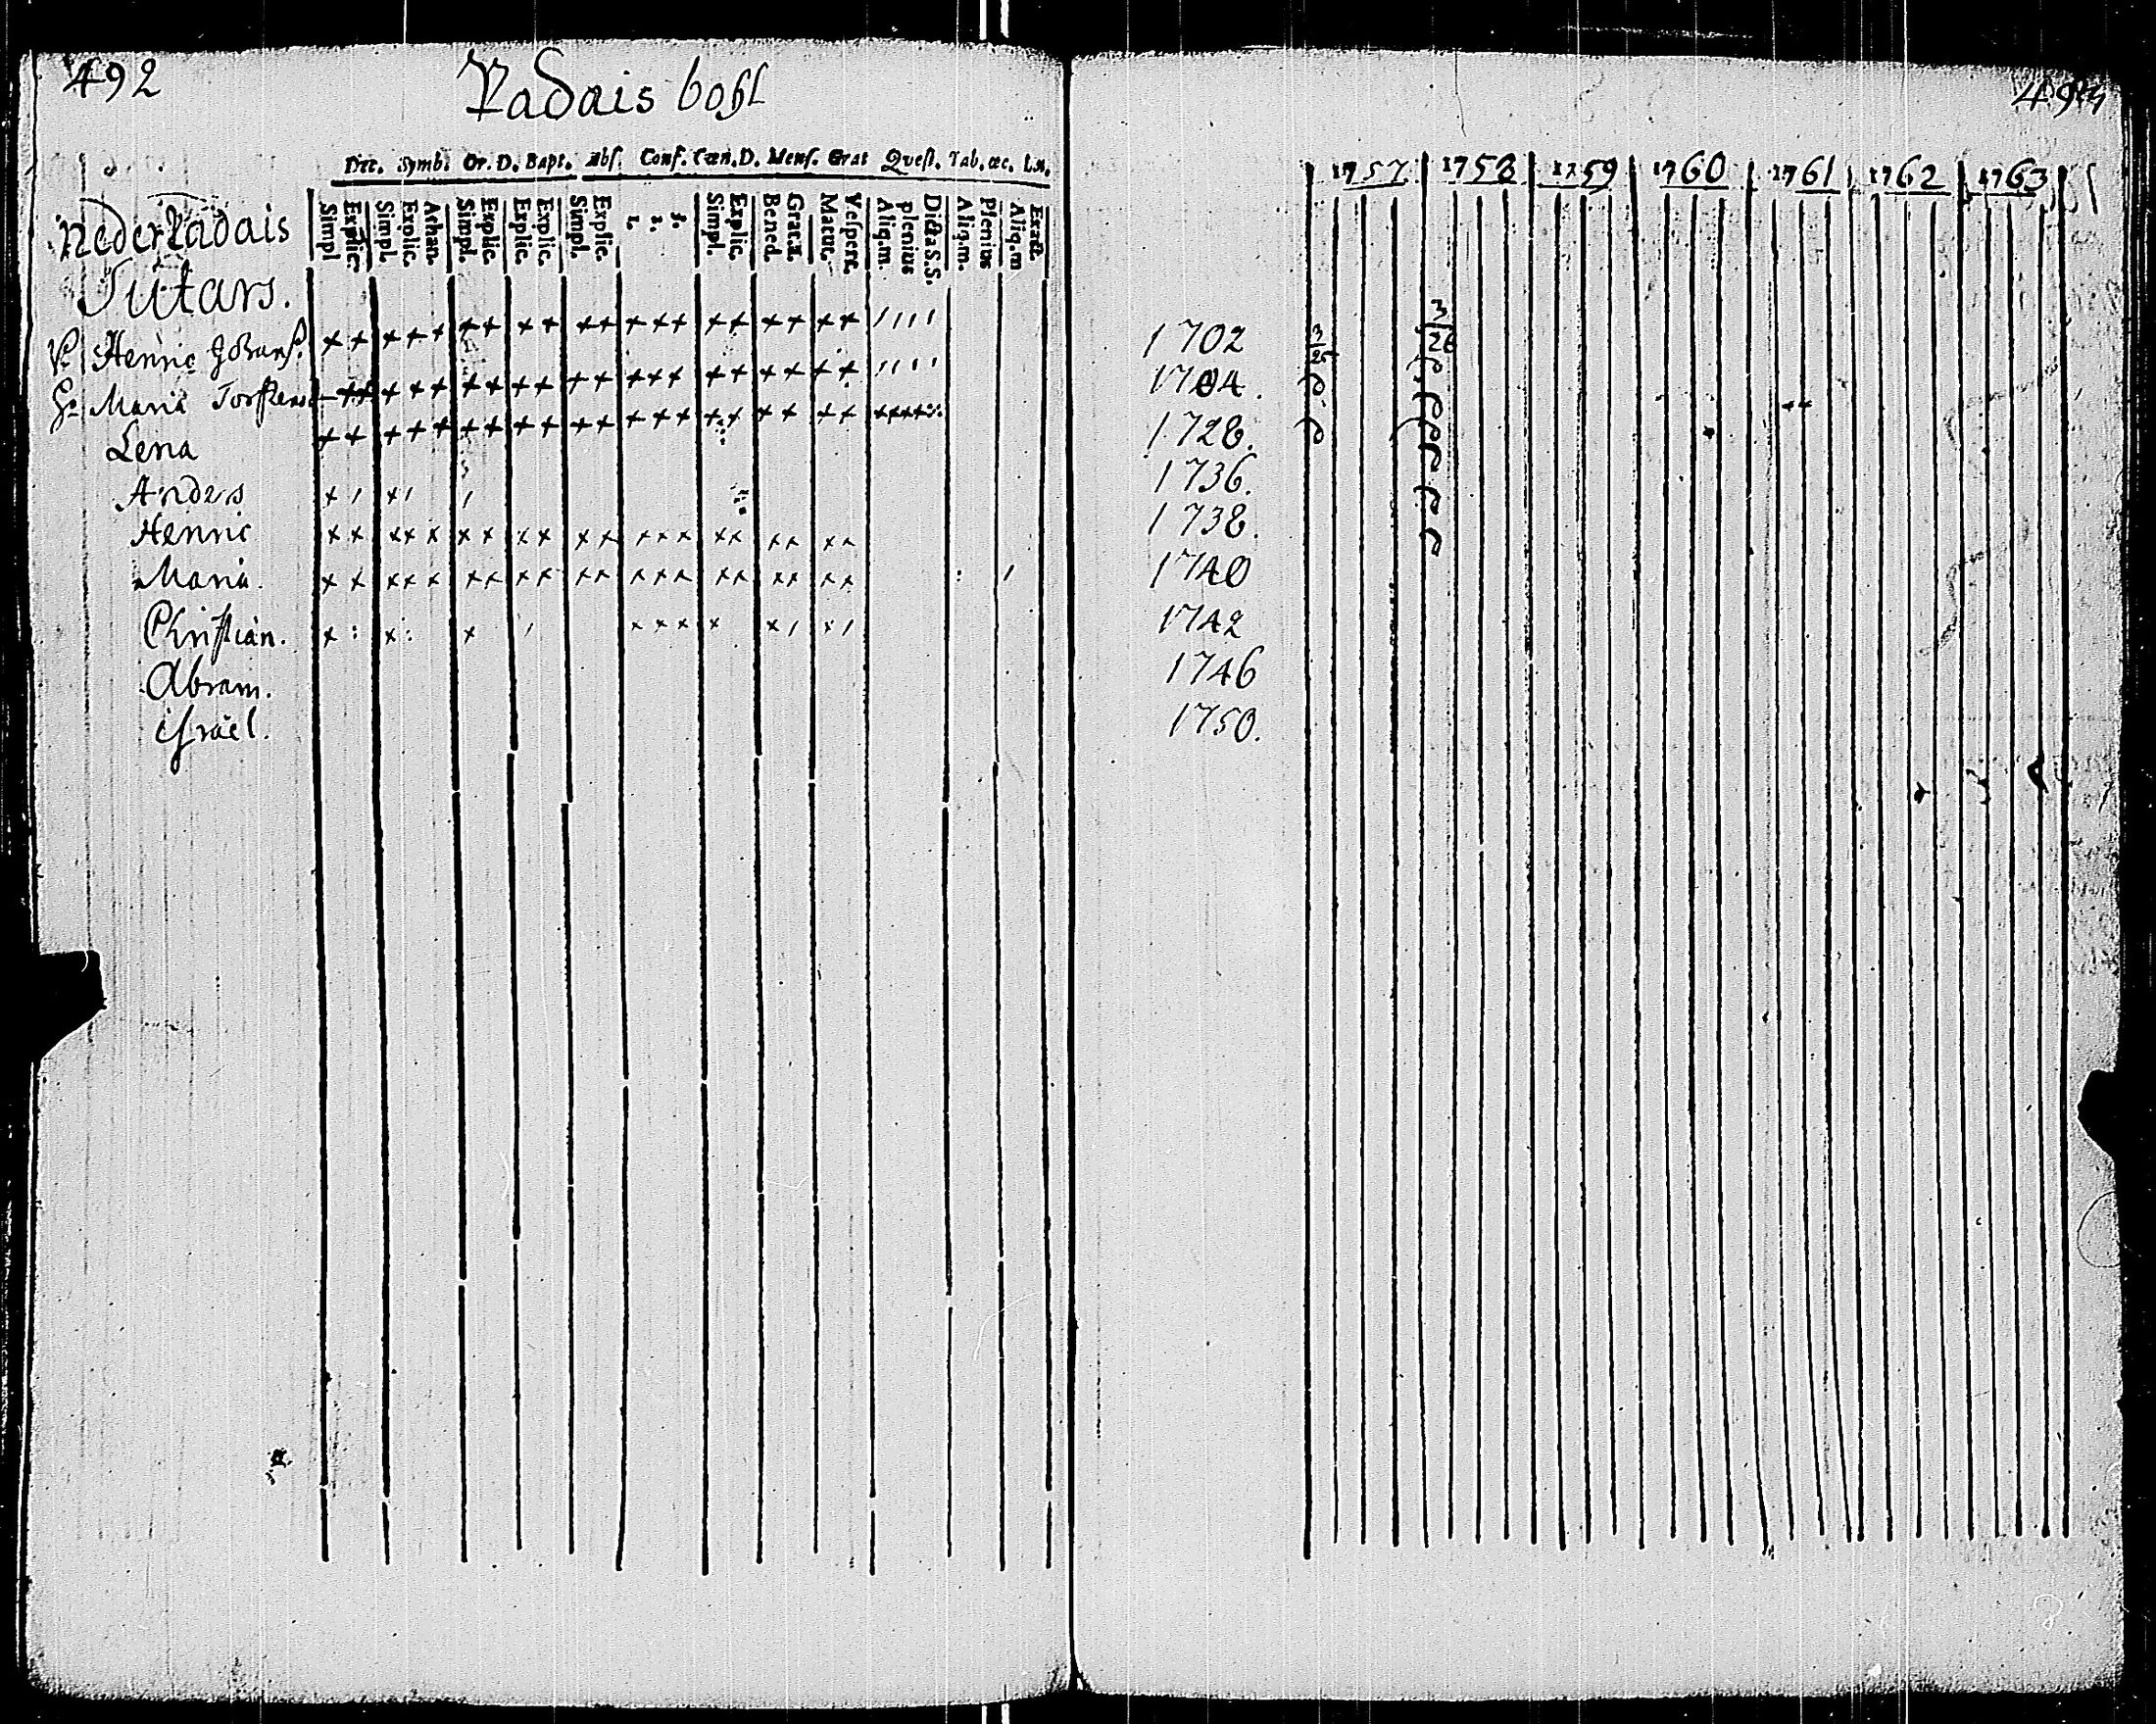 492
Padais bohl
Prec. Symb. Or. D. Bapt. Abs. Conf. Cœn. D. Mens. Grat Quest. Tab. œc. L.N.
Simpl Explic. Simpl. Explic. Athan. Simpl. Explic. Explic. Explic. Simpl. Explic. 1. 2. 3. Simpl. Explic. Bened. Gratia. Matut. Vespert. Aliq.m. plenius Dicta S.S. Aliq.m. plenius Aliq.m Exacte
Neder Padais
Jutars.
Henric Johans.
Maria Torstens
Lena
Anders
Henric
Maria.
Christian.
Abram.
Israel.
493
1757 1758 1759 1760 1761 1762 1763
1702 3/25 3/26
1704.
1728.
1736.
1738.
1740
1742
1746
1750.